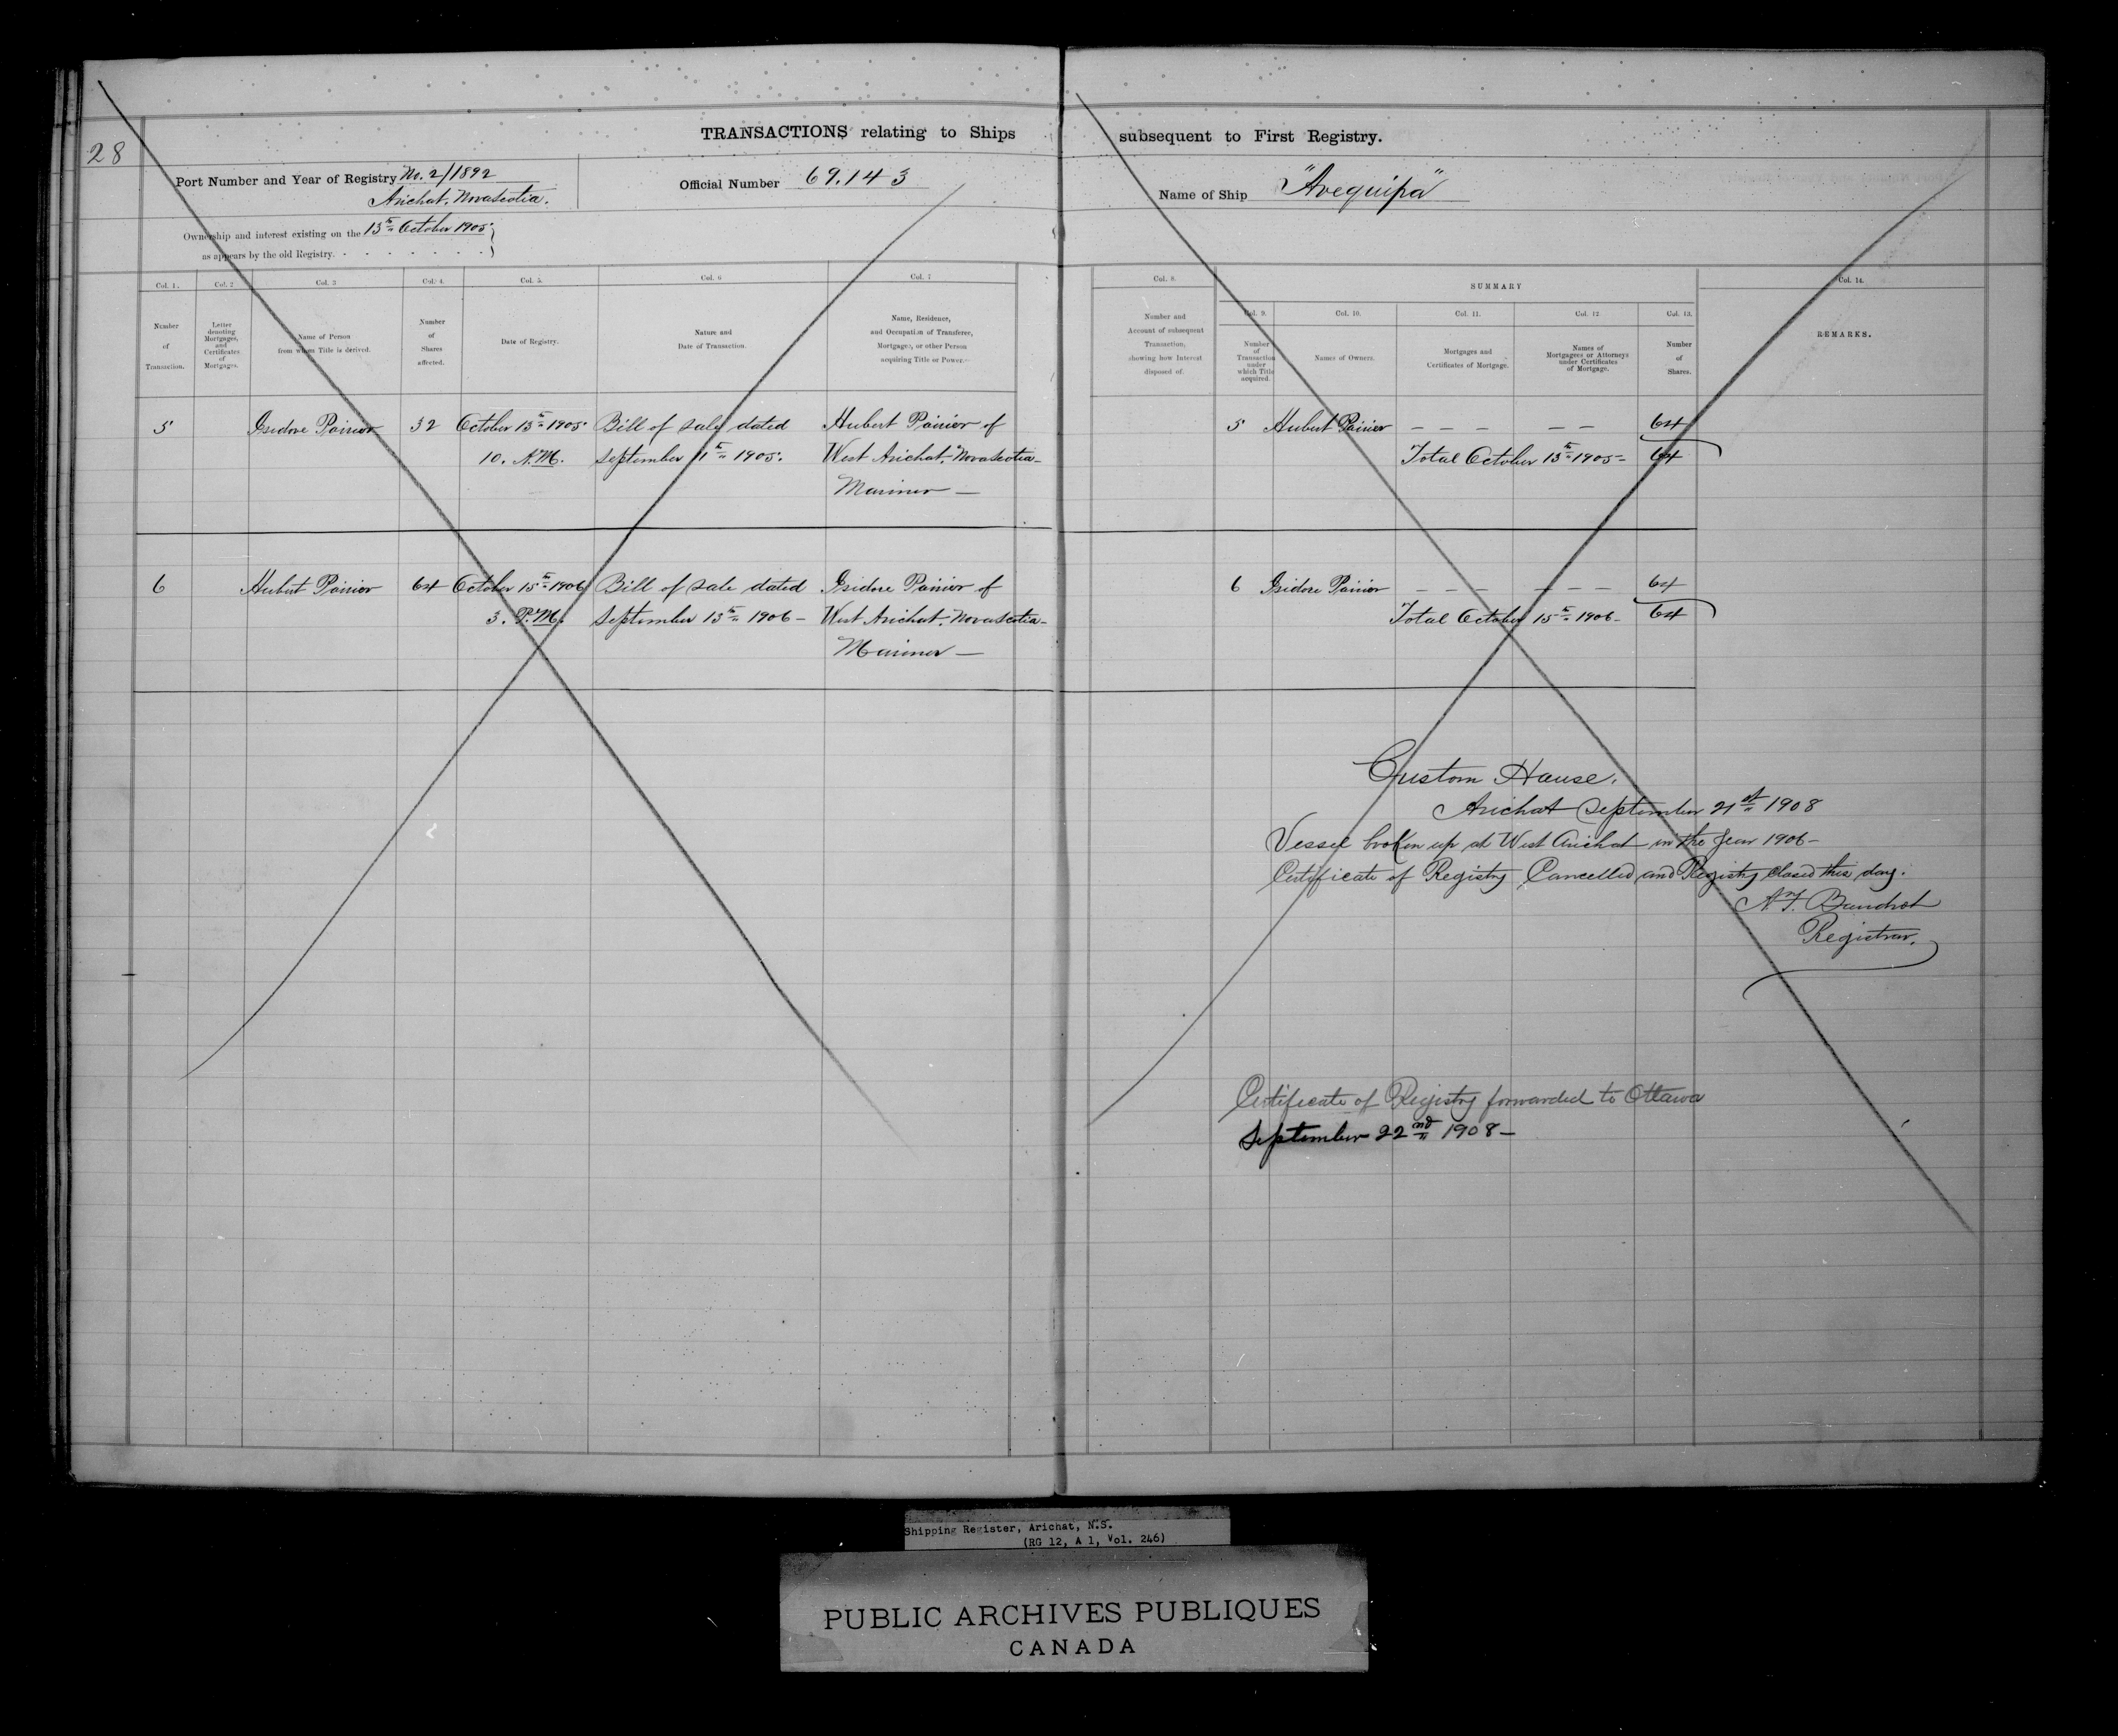 28
TRANSACTIONS relating to Ships subsequent to First Registry.
Port Number and Year of Registry No. 2/1892
Arichat. Novascotia.
Official Number 69.143
Name of Ship "Arequipa"
Ownership and interest existing on the 13th October 1905
as appears by the old Registry.
Col. 1. Col. 2 Col. 3 Col. 4. Col. 5. Col. 6 Col. 7
Number of Transaction.
Letter denoting Mortgages, and Certificates of Mortgages.
Name of Person from whom Title is derived.
Number of Shares affected.
Date of Registry.
Nature and Date of Transaction.
Name, Residence, and Occupation of Transferee, Mortgagee, or other Person acquiring Title or Power.
Col. 8.
Number and Account of subsequent Transaction, showing how Interest disposed of.
SUMMARY
Col. 9. Col. 10. Col. 11. Col. 12 Col. 13. Col. 14.
Number of Transaction under which Title acquired.
Names of Owners.
Mortgages and Certificates of Mortgage.
Names of Mortgagees or Attorneys under Certificates of Mortgage.
Number of Shares.
REMARKS.
5 Isidore Poirier 32 October 13th 1905 Bill of sale dated Hubert Poirier of
10. A.M. September 11th 1905. West Arichat. Novascotia
Mariner
5 Hubert Poirier 64
Total October 13th 1905 64
6 Hubert Poirier 64 October 15th 1906 Bill of sale dated Isidore Poirier of
3. P.M. September 13th 1906 West Arichat. Novascotia
Mariner
6 Isidore Poirier 64
Total October 15th 1906 64
Custom House.
Arichat September 21st 1908
Vessel broken up at West Arichat in the year 1906
Certificate of Registry Cancelled and Registry closed this day.
Registrar.
Certificate of Registry forwarded to Ottawa
September 22nd 1908
Shipping Register, Arichat, N.S.
(RG 12, A 1, Vol. 246)
PUBLIC ARCHIVES PUBLIQUES
CANADA